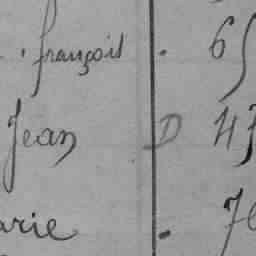 françois . 65
Jean D 43
arie . 70